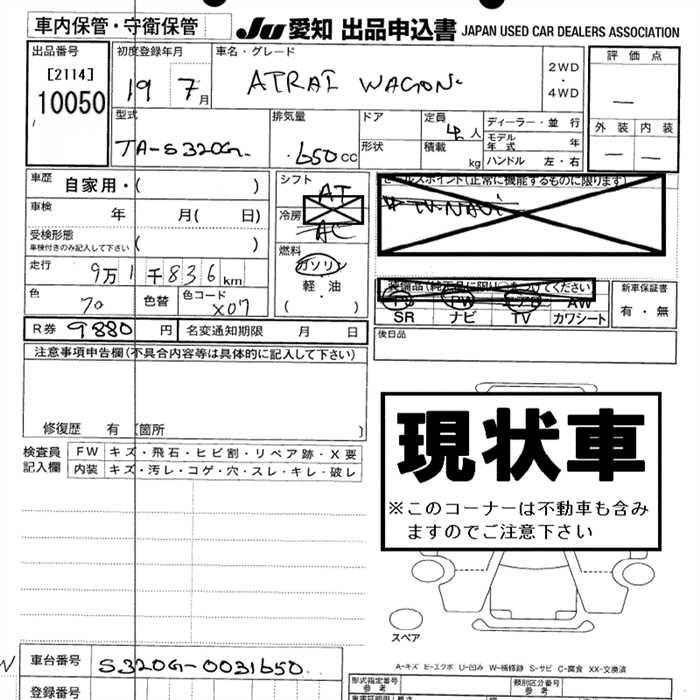 車内保管・守衛保管
JU 愛知 出品申込書 JAPAN USED CAR DEALERS ASSOCIATION
出品番号 初度登録年月 車名・グレード 評価点
[2114] 19 7月 ATRAI WAGON 2WD・4WD
10050
外装 内装
型式 排気量 ドア 定員 4人 ディーラー・並行
モデル年式 年
TA-S320G 650cc 形状 積載 kg ハンドル 左・右
車歴 自家用・( ) シフト AT セールスポイント(正常に機能するものに限ります)
車検 年 月( 日) 冷房 AC TV-NAVI
受検形態 車検付きのみ記入して下さい ( ) 燃料
走行 9万1千836km ガソリン
軽・油
( )
装備品(純正品に限り○をつけてください) 新車保証書
色 70 色替 色コード X07 PS PW エアB AW 有・無
SR ナビ TV カワシート
R券 9880円 名変通知期限 月 日 後日品
注意事項申告欄(不具合内容等は具体的に記入して下さい)
現状車
修復歴 有 〔箇所 〕
検査員記入欄 FW キズ・飛石・ヒビ割・リペア跡・X要
内装 キズ・汚レ・コゲ・穴・スレ・キレ・破レ
※このコーナーは不動車も含み
ますのでご注意下さい
スペア
A-キズ E-エクボ U-凹み W-補修跡 S-サビ C-腐食 XX-交換済
車台番号 S320G-0031650
形式指定番号 参考 類別区分番号 参考
登録番号